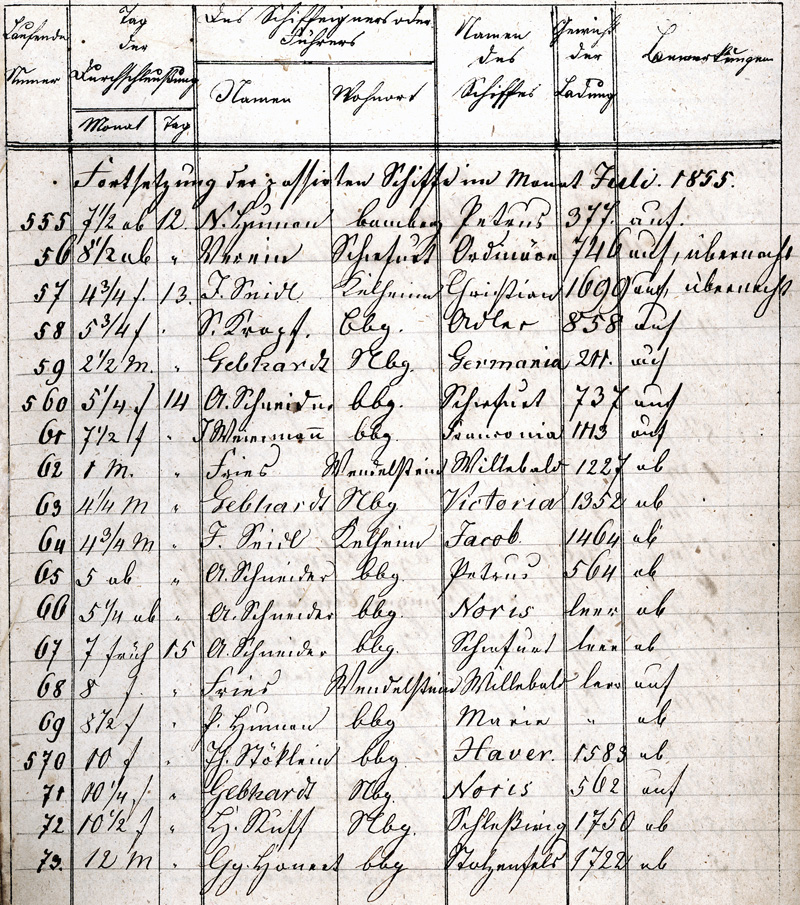 Laufende Numer | Tag der Durchschleußung | Des Schiffeigners oder Führers | Namen des Schiffes | Gewicht der Ladung | Bemerkungen
Monat | Tag | Namen | Wohnort
Fortsetzung der passirten Schiffe im Monat Juli. 1855.
555 7 1/2 ab 12. N. Human bamberg Petrus 377. auf.
56 8 1/2 ab " Verein Schwfurt Ordinäre 746 auf, übernacht
57 4 3/4 f. 13. J. Seidl Kelheim Christian 1699 auf, übernacht
58 5 3/4 f " S. Kropf. bbg. Adler 858 auf
59 2 1/2 M. " Gebhardt Nbg. Germania 211. auf
560 5 1/4 f 14 A. Schneider bbg. Schwfurt 737 auf
61 7 1/2 f " J bbg. Franconia 1113 auf
62 1 M. " Fries Wendelstein Willebald 1227 ab
63 4 1/4 M " Gebhardt Nbg Victoria 1352 ab
64 4 3/4 M " J. Seidl Kelheim Jacob. 1464 ab
65 5 ab " A. Schneider bbg. Petrus 564 ab
66 5 1/4 ab " A. Schneider bbg. Noris leer ab
67 7 früh 15 A. Schneider bbg. Schwfurt leer ab
68 8 f " Fries Wendelstein Willebald leer auf
69 8 1/2 f " P. Human bbg Marie " ab
570 10 f " Th. Stöklein bbg Xaver. 1583 ab
71 10 1/4 f. " Gebhardt Nbg. Noris 562 auf
72 10 1/2 f " H. Nbg. Schleßwig 1750 ab
73. 12 M " Gg. bbg Stolzenfels 1722 ab